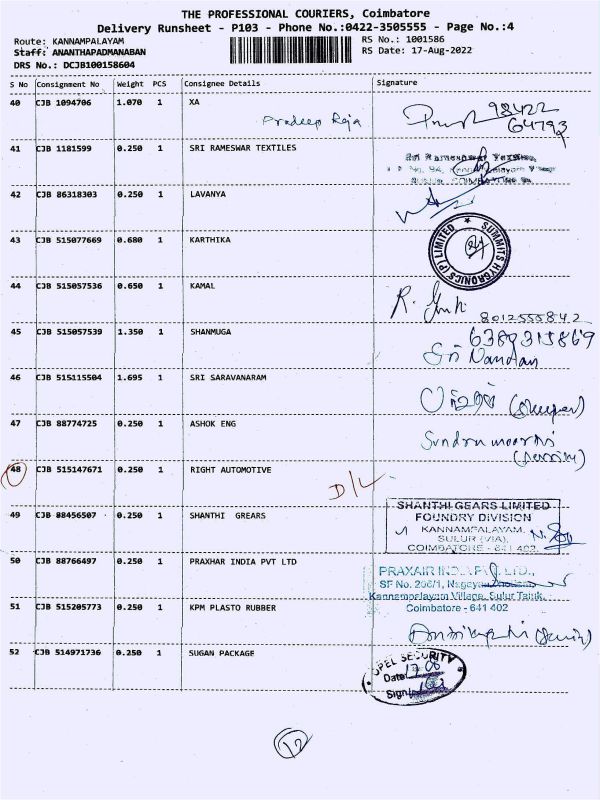 THE PROFESSIONAL COURIERS, Coimbatore
Delivery Runsheet - P103 - Phone No.:0422-3505555 - Page No.:4
Route: KANNAMPALAYAM
RS No.: 1001586
Staff: ANANTHAPADMANABAN
RS Date: 17-Aug-2022
DRS No.: DCJB100158604
S No Consignment No Weight PCS Consignee Details Signature
40 CJB 1094706 1.070 1 XA
Pradeep Raja
98422
64793
41 CJB 1181599 0.250 1 SRI RAMESWAR TEXTILES
42 CJB 86318303 0.250 1 LAVANYA
43 CJB 515077669 0.680 1 KARTHIKA
SUMMITS HYGRONICS (P) LIMITED
44 CJB 515057536 0.650 1 KAMAL
8012555842
45 CJB 515057539 1.350 1 SHANMUGA
6389315869
Sri Nandan
46 CJB 515115504 1.695 1 SRI SARAVANARAM
47 CJB 88774725 0.250 1 ASHOK ENG
48 CJB 515147671 0.250 1 RIGHT AUTOMOTIVE
D/L
49 CJB 88456507 0.250 1 SHANTHI GREARS
SHANTHI GEARS LIMITED
FOUNDRY DIVISION
KANNAMPALAYAM,
SULUR (VIA),
COIMBATORE - 641 402.
50 CJB 88766497 0.250 1 PRAXHAR INDIA PVT LTD
PRAXAIR INDIA PVT. LTD.,
SF No. 206/1,
Kannampalayam Village, Sulur Taluk,
Coimbatore - 641 402
51 CJB 515205773 0.250 1 KPM PLASTO RUBBER
52 CJB 514971736 0.250 1 SUGAN PACKAGE
OPEL SECURITY
Date
Sign
12